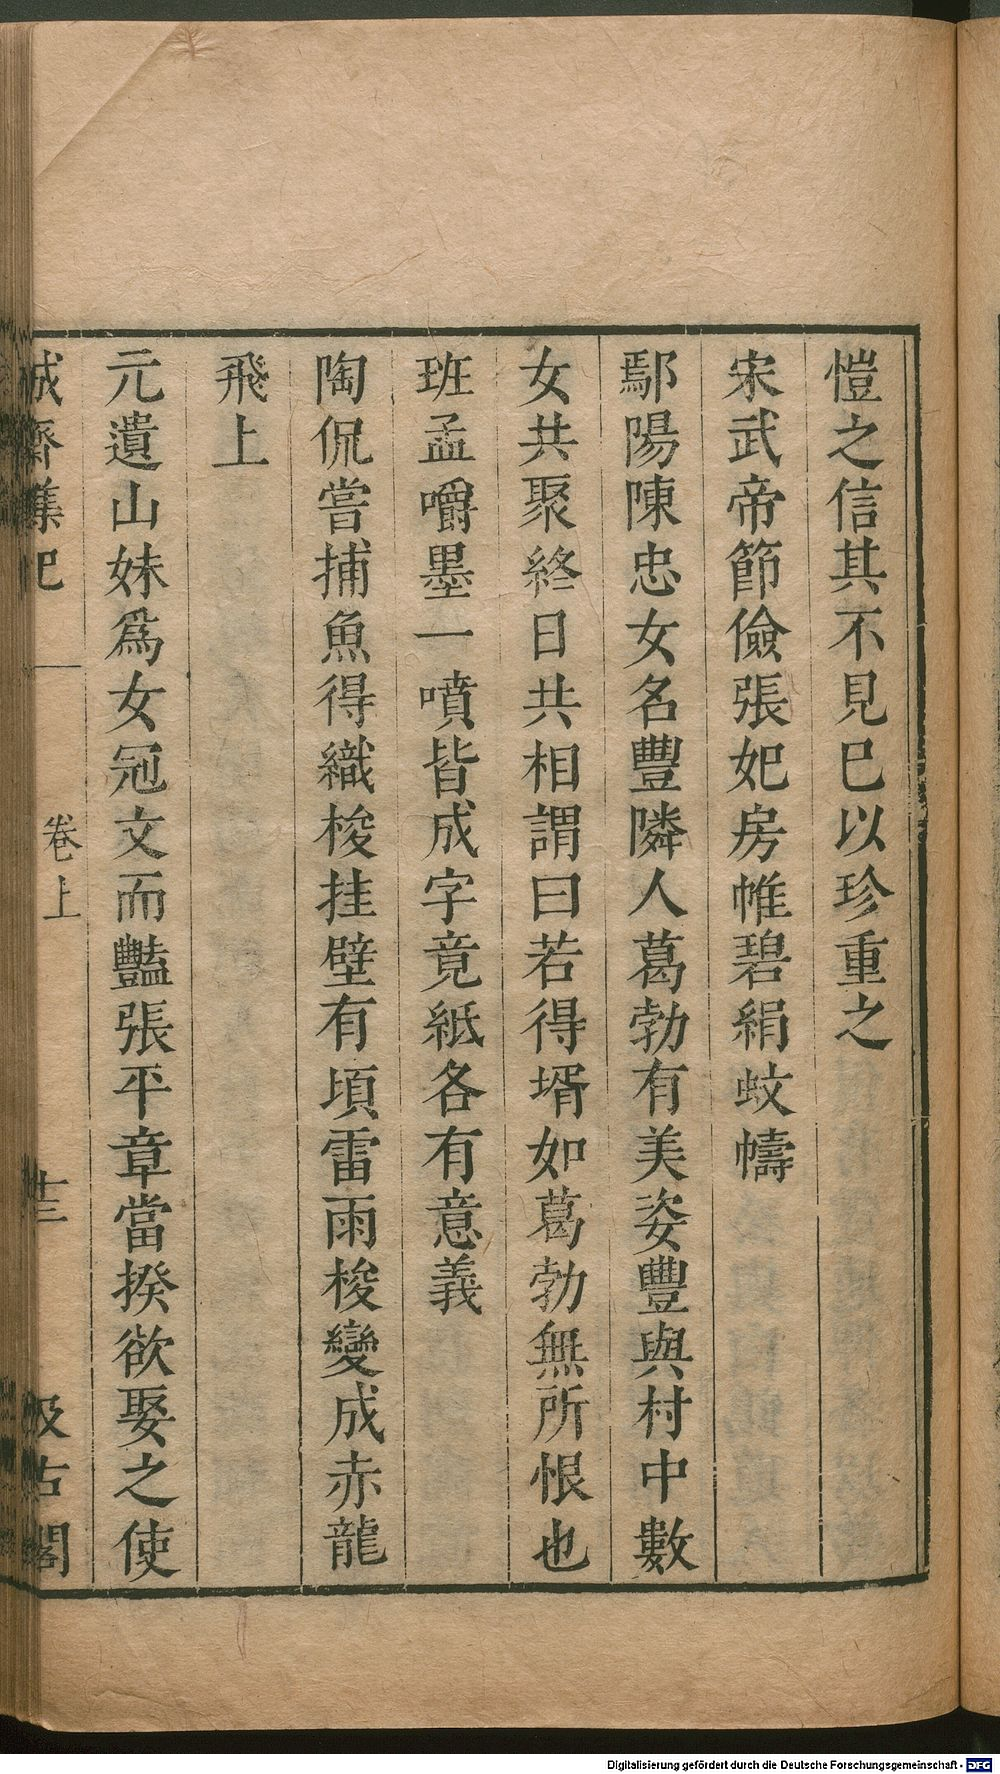 愷之信其不見巳以珍重之
宋武帝節儉張妃房帷碧絹蚊幬
鄢陽陳忠女名豐隣人葛勃有美姿豐與村中數
女共聚終日共相謂曰若得壻如葛勃無所恨也
班孟嚼墨一噴皆成字竟紙各有意義
陶侃嘗捕魚得織梭挂壁有頃雷雨梭變成赤龍
飛上
元遺山妹爲女冠文而豔張平章當揆欲娶之使
誠齋雜記 卷上 十三 汲古閣
Digitalisierung gefördert durch die Deutsche Forschungsgemeinschaft - DFG